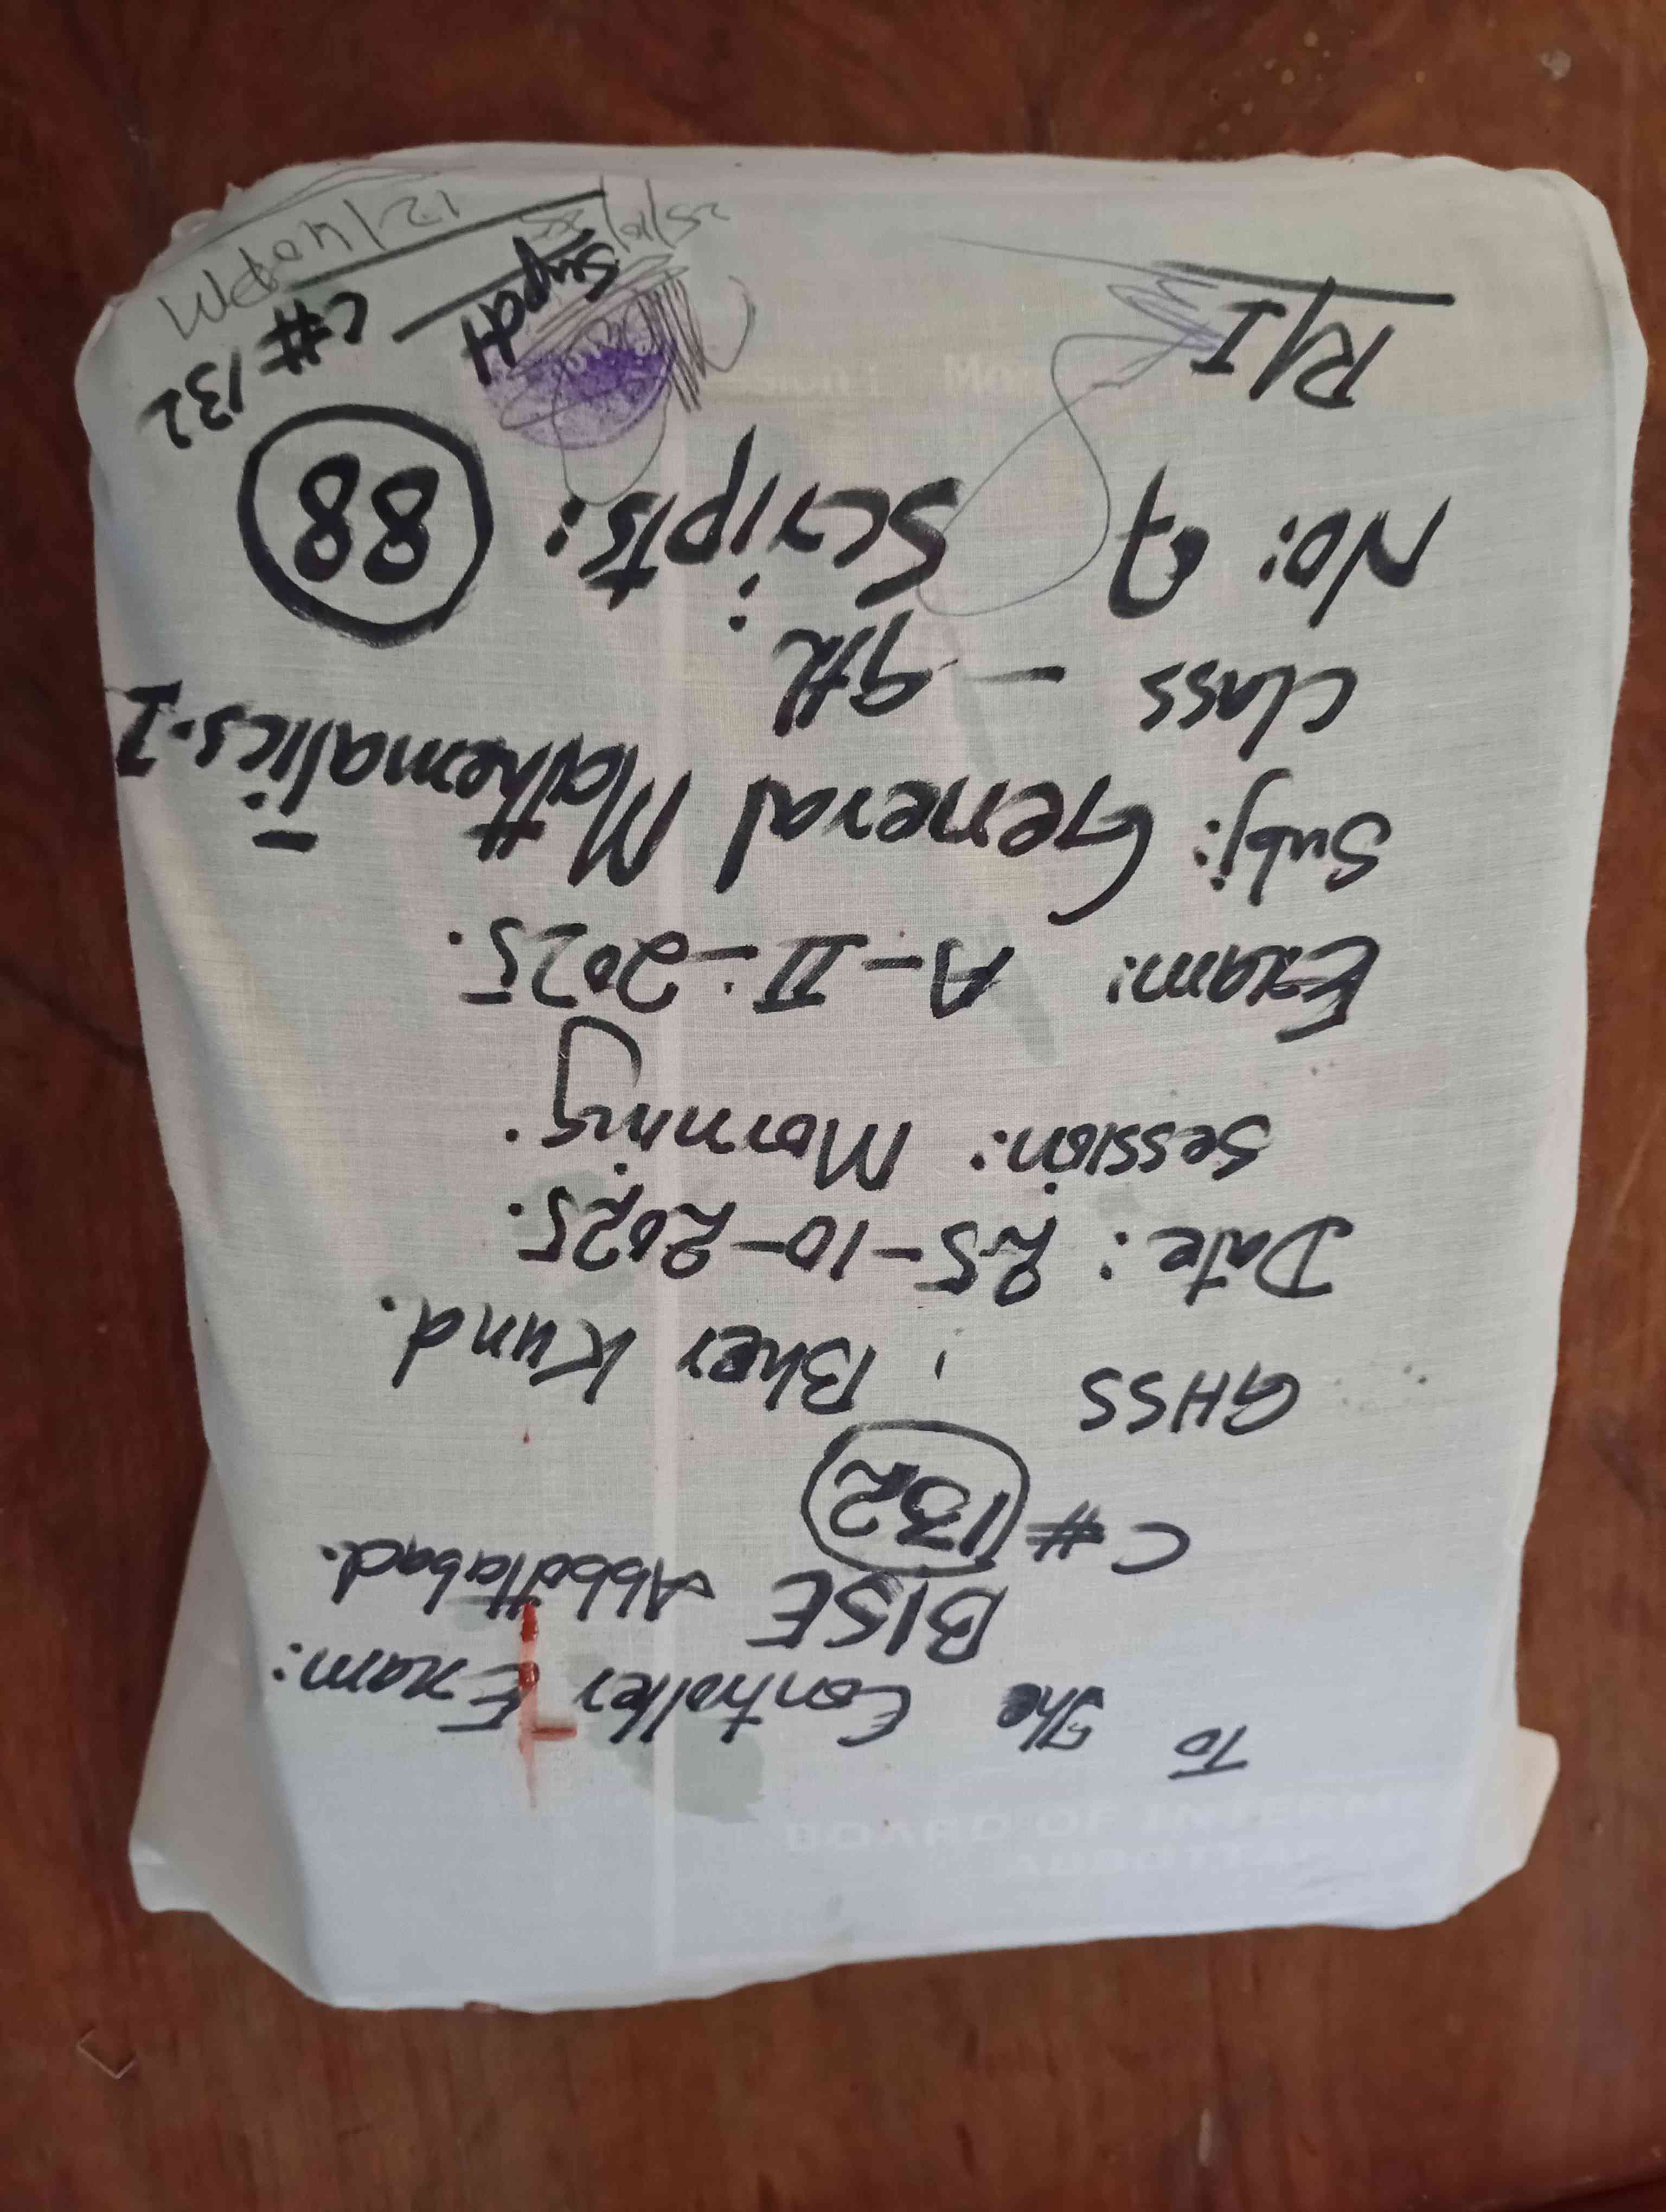 To The Controller Exam:
BISE Abbottabad.
C # 132
GHSS, Bher Kund.
Date: 25-10-2025.
Session: Morning.
Exam: A-II-2025.
Subj: General Mathematics-I
Class - 9th
No: of Scripts: 88
R/I
Supdt
C# 132
25/10/25
12/40 PM
BOARD OF INTERM
ABBOTTABAD